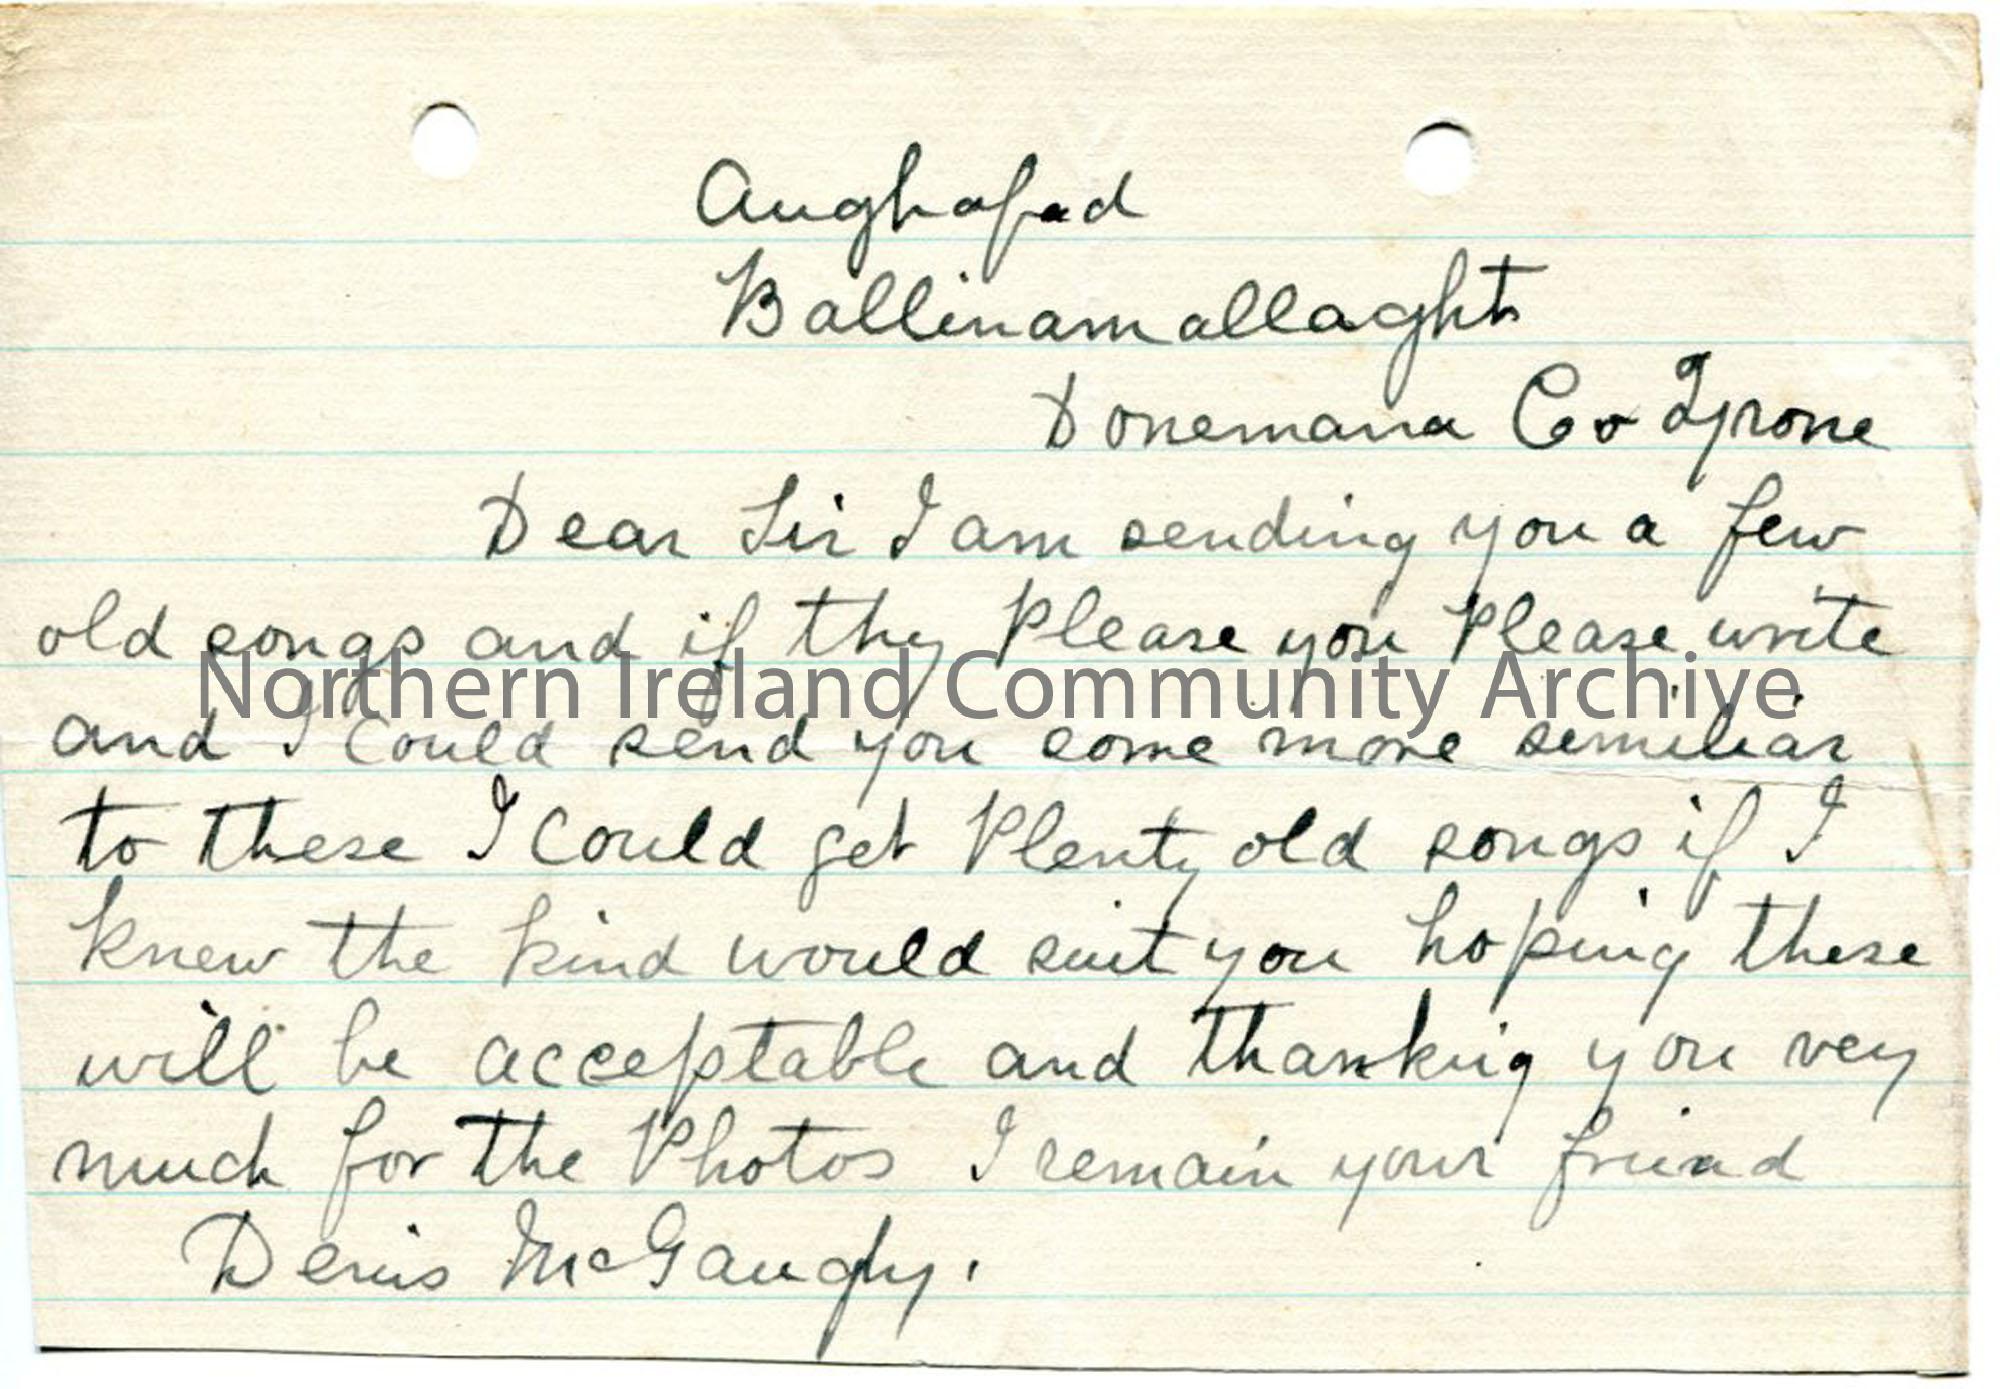 Aughafad
Ballinamallaght
Donemana Co Tyrone
Dear Sir I am sending you a few
old songs and if they Please you Please write
Northern Ireland Community Archive
and I Could send you some more similiar
to these I Could get Plenty old songs if I
knew the kind would suit you hoping these
will be acceptable and thanking you very
much for the Photos I remain your friend
Denis McGaughy.